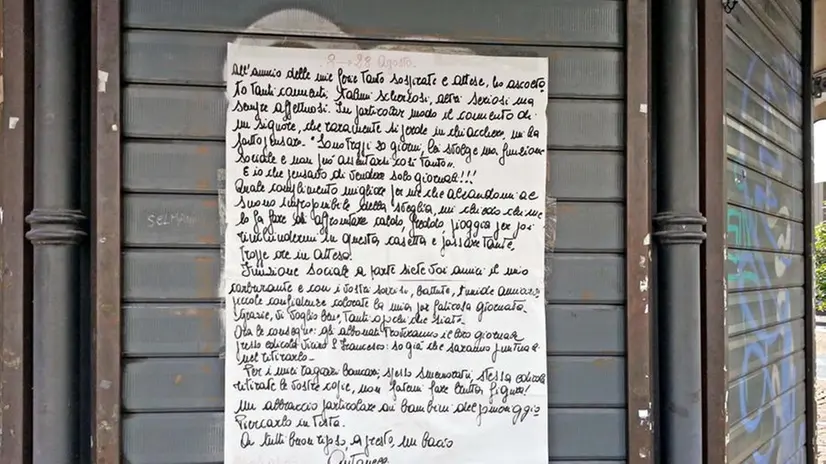 9 → 28 Agosto.
all'annuncio delle mie ferie tanto sospirate e attese, ho ascolta
to tanti commenti, taluni scherzosi, altri seriosi ma
sempre affettuosi. In particolar modo il commento di
un signore, che raramente si perde in chiacchiere, mi ha
fatto pensare - "Sono troppi 20 giorni, lei svolge una funzione
sociale e non può assentarsi così tanto".
E io che pensavo di vendere solo giornali!!!
Quale complimento migliore per me che alzandomi al
suono improponibile della sveglia, mi chiedo chi me
lo fa fare di affrontare caldo, freddo, pioggia per poi
rinchiudermi in questa casetta e passare tante,
troppe ore in attesa.
Funzione sociale a parte siete voi amici il mio
carburante e con i vostri sorrisi, battute, timide
piccole confidenze colorate la mia pur faticosa giornata.
Grazie, vi voglio bene, tanti o pochi che siate.
Ora le consegne: gli abbonati troveranno il loro giornale
presso edicola S. Francesco: so già che saranno puntuali
nel ritirarlo -
Per i miei ragazzi bancari, spesso smemorati, stessa edicola
ritirate le vostre copie, non fatemi fare brutta figura!
Un abbraccio particolare ai bambini del pomeriggio
Piercarlo in testa.
A tutti buon riposo a presto, un bacio
SELMA